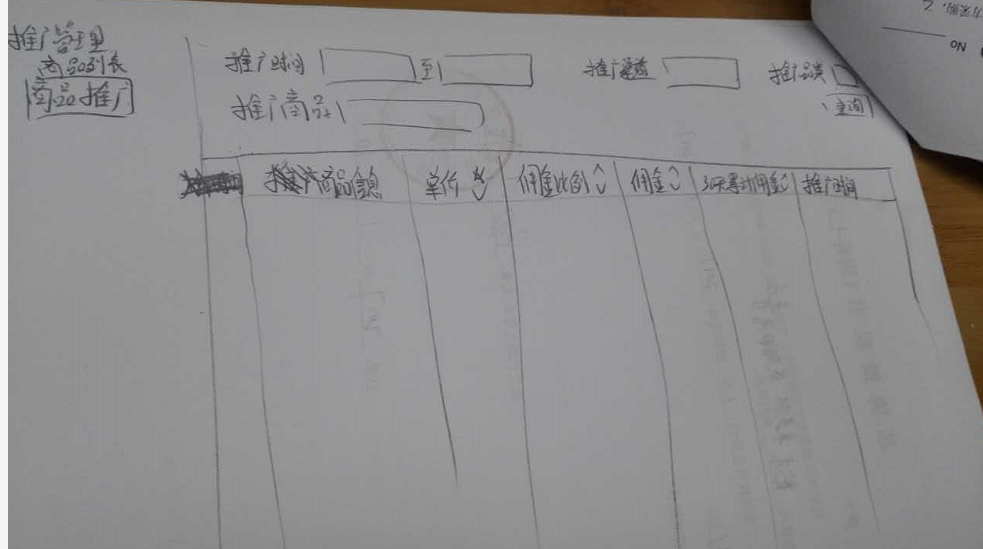 推广管理
商品列表
商品推广
推广时间 至 推广渠道 推广品类
推广商品 查询
商品信息 单价 佣金比例 佣金 30天累计佣金 推广时间
NO